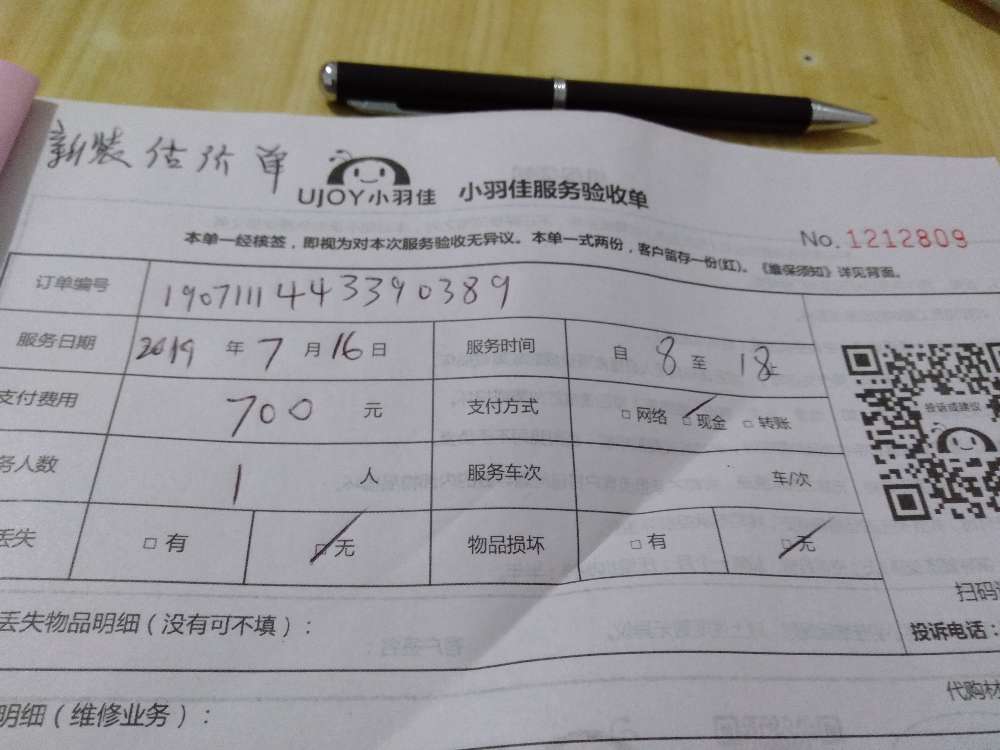 新装估价单
UJOY小羽佳 小羽佳服务验收单
No.1212809
本单一经核签，即视为对本次服务验收无异议。本单一式两份，客户留存一份(红)。《维保须知》详见背面。
订单编号 1907111443390389
服务日期 2019 年 7 月 16 日 服务时间 自 8 至 18止
支付费用 700 元 支付方式 □ 网络 □ 现金 □ 转账
务人数 1 人 服务车次 车/次
丢失 □ 有 □ 无 物品损坏 □ 有 □ 无
投诉或建议
扫码
丢失物品明细（没有可不填）：
投诉电话：
代购材
明细（维修业务）：